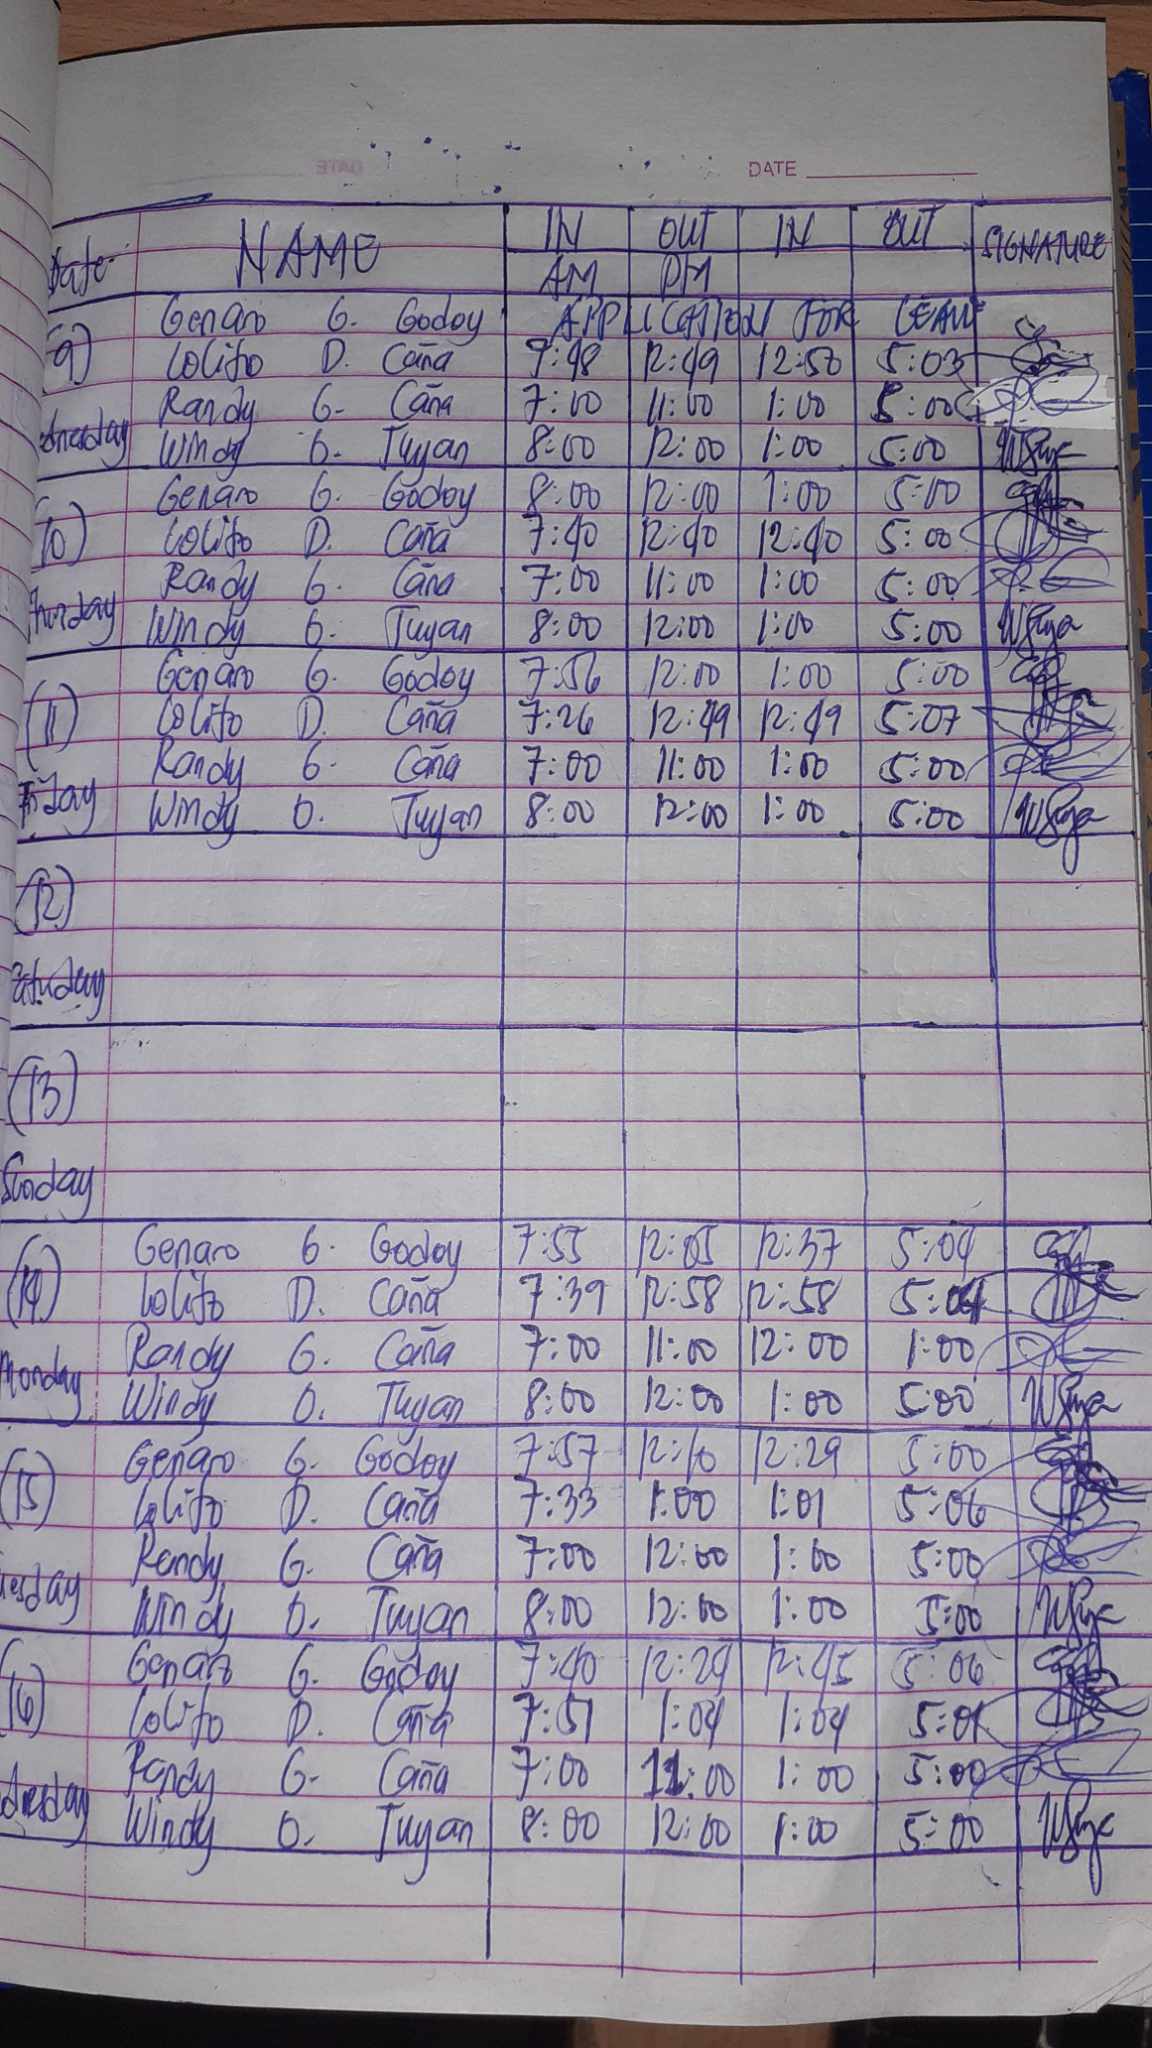 DATE
Date NAME IN OUT IN OUT SIGNATURE
AM PM
Genaro G. Godoy APPLICATION FOR LEAVE
(9) Lolito D. Caña 7:48 12:49 12:50 5:03
Randy G. Caña 7:00 11:00 1:00 5:00
Wednesday Windy O. Tuyan 8:00 12:00 1:00 5:00
Genaro G. Godoy 8:00 12:00 1:00 5:00
(10) Lolito D. Caña 7:40 12:40 12:40 5:00
Randy G. Caña 7:00 11:00 1:00 5:00
Thursday Windy O. Tuyan 8:00 12:00 1:00 5:00
Genaro G. Godoy 7:56 12:00 1:00 5:00
(11) Lolito D. Caña 7:26 12:49 12:49 5:07
Randy G. Caña 7:00 11:00 1:00 5:00
Friday Windy O. Tuyan 8:00 12:00 1:00 5:00
(12)
Saturday
(13)
Sunday
Genaro G. Godoy 7:55 12:05 12:37 5:04
(14) Lolito D. Caña 7:39 12:58 12:58 5:04
Randy G. Caña 7:00 11:00 12:00 1:00
Monday Windy O. Tuyan 8:00 12:00 1:00 5:00
Genaro G. Godoy 7:57 12:10 12:29 5:00
(15) Lolito D. Caña 7:33 1:00 1:01 5:06
Randy G. Caña 7:00 12:00 1:00 5:00
Tuesday Windy O. Tuyan 8:00 12:00 1:00 5:00
Genaro G. Godoy 7:40 12:29 12:45 5:06
(16) Lolito D. Caña 7:51 1:04 1:04 5:01
Randy G. Caña 7:00 11:00 1:00 5:00
Wednesday Windy O. Tuyan 8:00 12:00 1:00 5:00